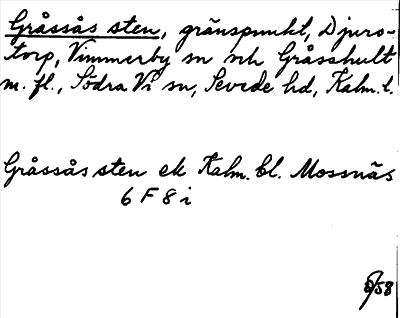 Gråssås sten, gränspunkt, Djurs-
torp, Vimmerby sn och Gråsshult
m. fl., Södra Vi sn, Sevede hd, Kalm. l.
Gråssås sten ek Kalm. bl. Mossnäs
6 F 8 i
/58